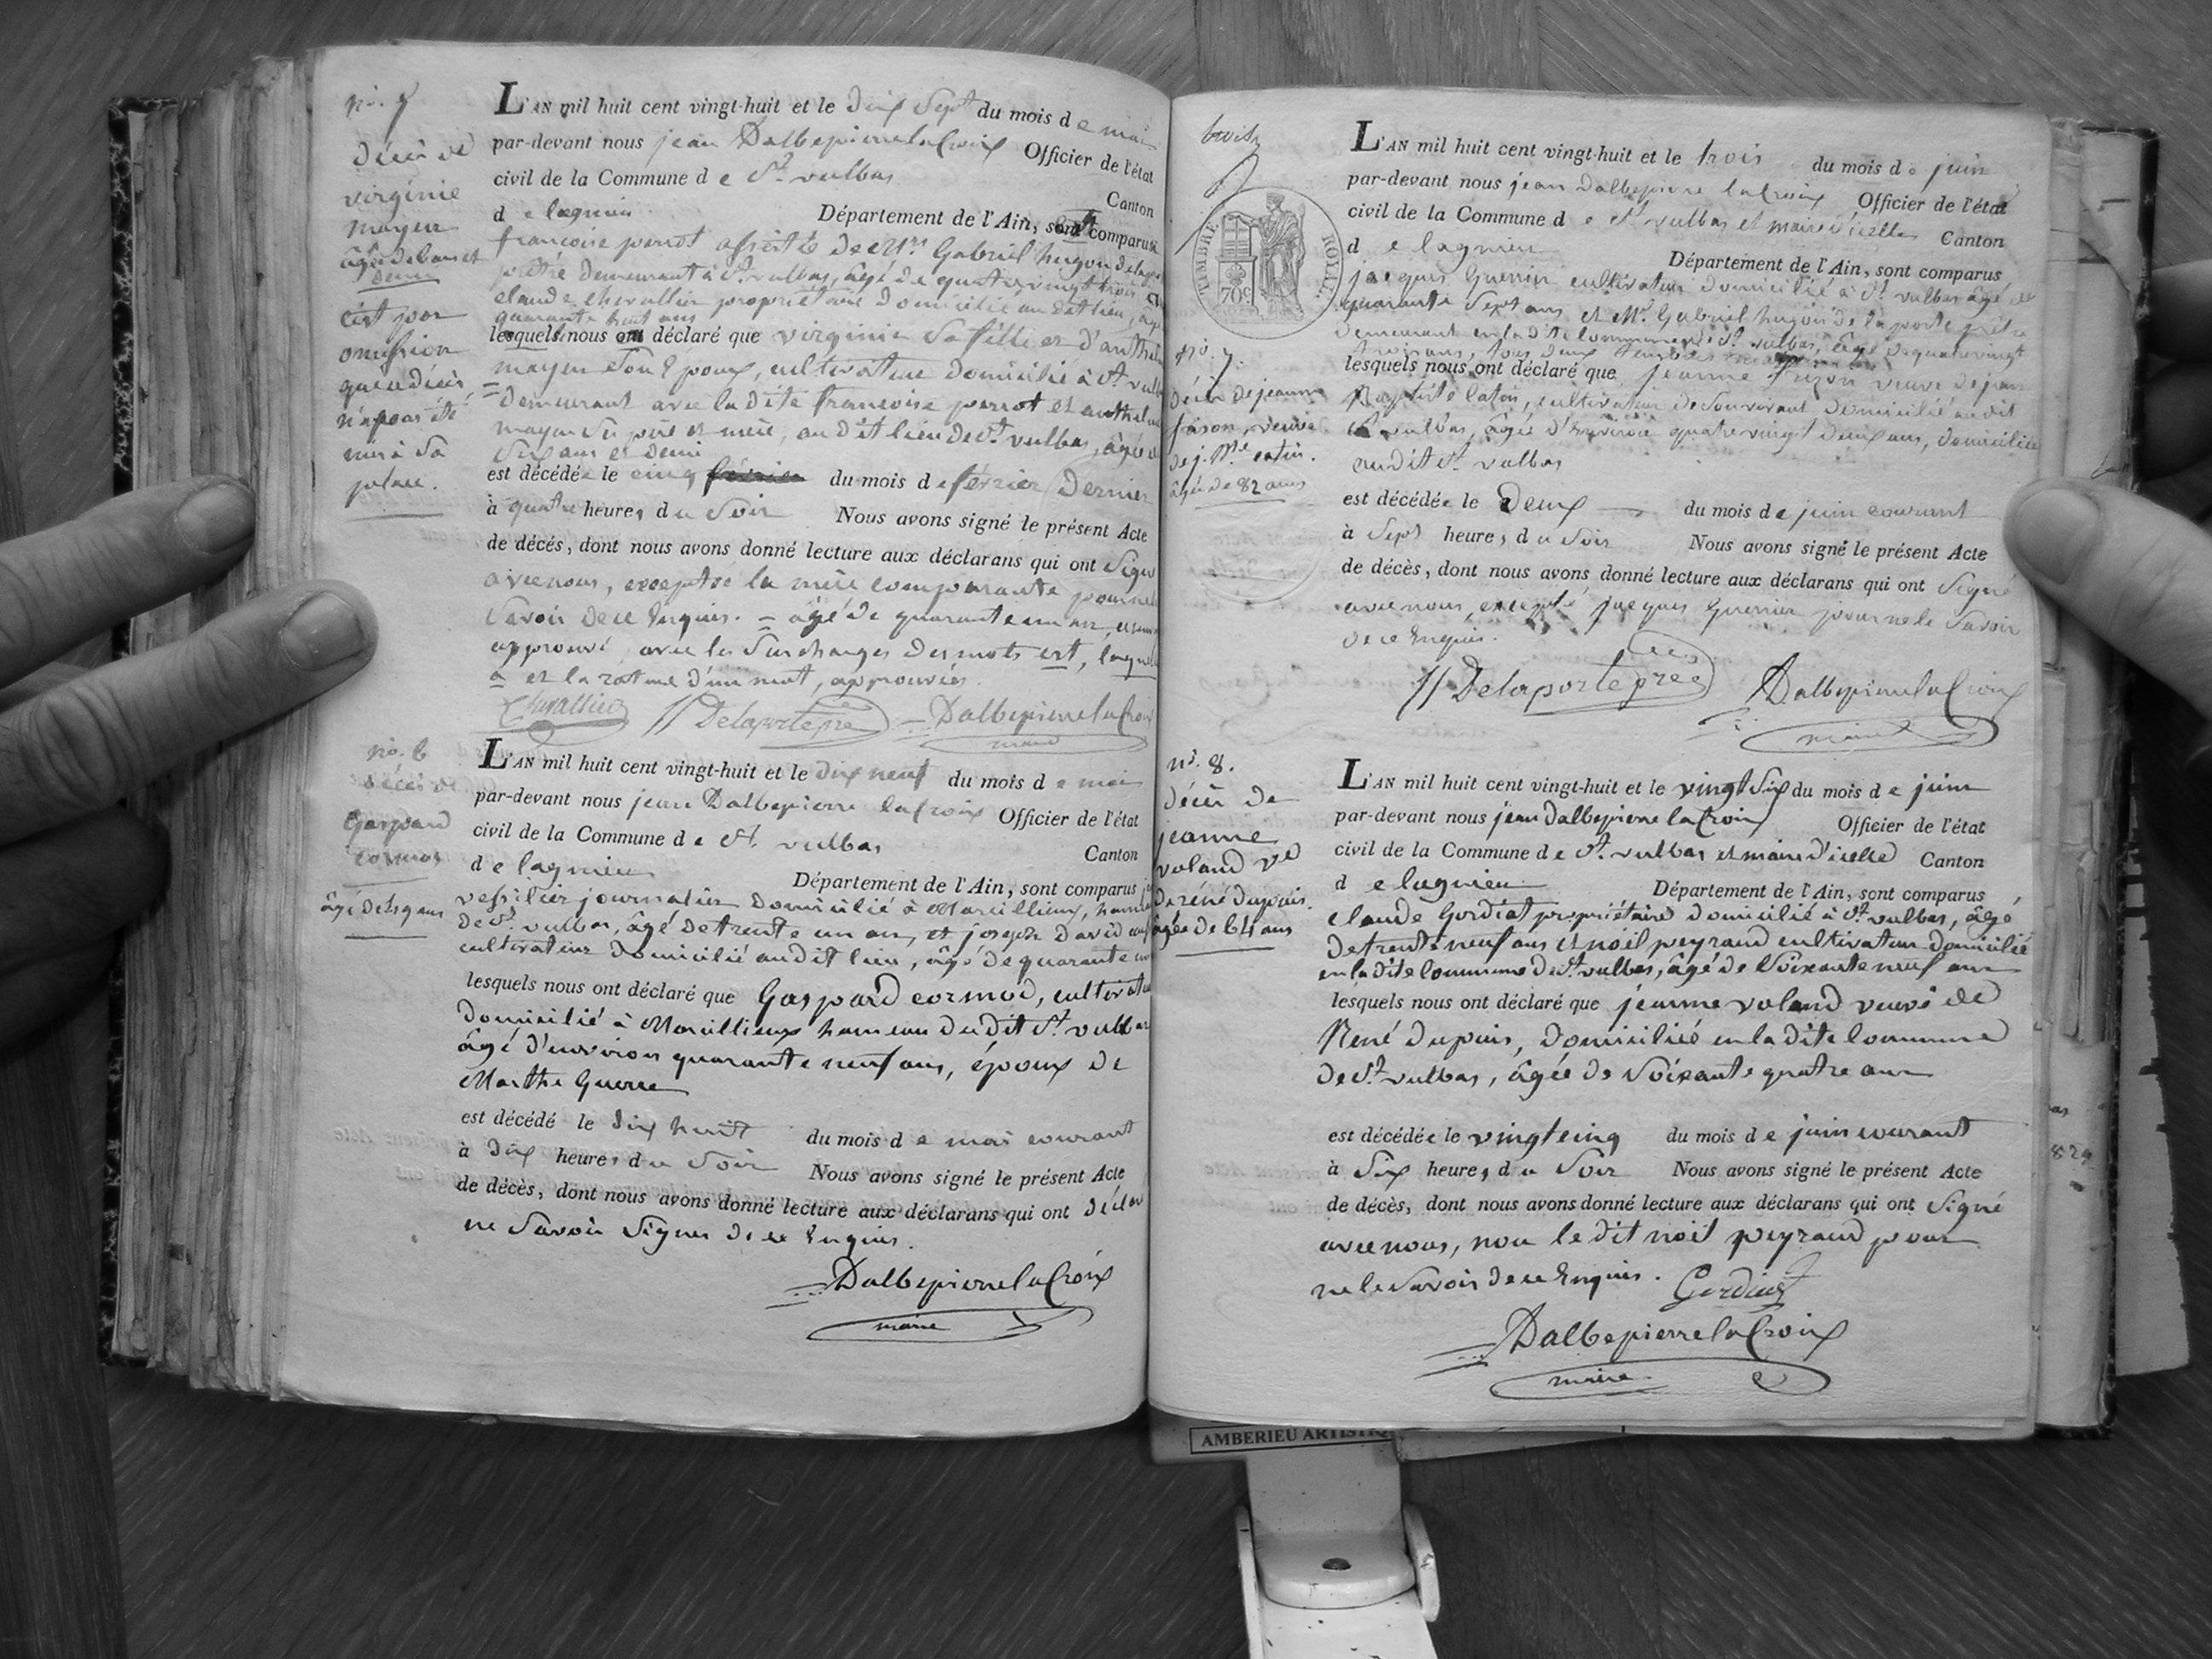 décès de
virginie
mayeu
âgée de 6 ans et
demi
c'est par
omission
que ce décès
n'a pas été
mis à sa
place.
L'AN mil huit cent vingt-huit et le dix sept du mois de mai
par-devant nous jean Dalbepierre laCroix Officier de l'état
civil de la Commune de St. vulbas Canton
de lagnieu Département de l'Ain, sont comparus
françoise perrot assistée de Mre Gabriel hugon delaporte
prêtre demeurant à St. vulbas, âgé de quatrevingt trois
claude chevallier propriétaire domicilié au dit lieu, âgé
quarante huit ans
lesquels nous ont déclaré que virginie sa fille et d'anthelme
mayeu son époux, cultivateur domicilié à St. vulbas
demeurant avec la dite françoise perrot et anthelme
mayeu ses père et mère, au dit lieu de St. vulbas, âgée de
six ans et demi
est décédée le cinq février du mois de février dernier
à quatre heures du soir Nous avons signé le présent Acte
de décés, dont nous avons donné lecture aux déclarans qui ont signé
avec nous, excepté la mère comparante pour ne le
savoir de ce Enquis. = âgé de quarante un an
approuvé, avec les surcharges des mots est,
a et la rature d'un mot, approuvées.
Chevallier Delaporte pre Dalbepierre laCroix
maire
no. 6
décès de
Gaspard
cormod
âgé de 49 ans
L'AN mil huit cent vingt-huit et le dix neuf du mois de mai
par-devant nous jean Dalbepierre laCroix Officier de l'état
civil de la Commune de St. vulbas Canton
de lagnieu Département de l'Ain, sont comparus
journalier domicilié à Marcillieux, hameau
de St. vulbas, âgé de trente un ans, et joseph David
cultivateur domicilié au dit lieu, âgé de quarante
lesquels nous ont déclaré que Gaspard cormod, cultivateur
domicilié à Marcillieux hameau du dit St. vulbas
âgé d'environ quarante neuf ans, époux de
Marthe Guerre
est décédé le dix huit du mois de mai courant
à dix heures du soir Nous avons signé le présent Acte
de décès, dont nous avons donné lecture aux déclarans qui ont déclaré
ne savoir signer de ce Enquis.
Dalbepierre laCroix
maire
trois
TIMBRE ROYAL
70c
no. 7.
décès de jeanne
fuson, veuve
de j. Bte. catin.
âgée de 82 ans
L'AN mil huit cent vingt-huit et le trois du mois de juin
par-devant nous jean Dalbepierre laCroix Officier de l'état
civil de la Commune de St. vulbas et maire d'icelle Canton
de lagnieu Département de l'Ain, sont comparus
jacques Guerrier cultivateur domicilié à St. vulbas âgé de
quarante sept ans et Mre. Gabriel hugon de la porte prêtre
demeurant en la dite commune de St. vulbas, âgé de quatrevingt
trois ans, tous deux
lesquels nous ont déclaré que jeanne fuson veuve de jean
Baptiste catin, cultivateur de son vivant domicilié au dit
St. vulbas, âgée d'environ quatrevingt deux ans, domiciliée
au dit St. vulbas
est décédée le deux du mois de juin courant
à sept heures du soir Nous avons signé le présent Acte
de décès, dont nous avons donné lecture aux déclarans qui ont signé
avec nous, excepté jacques Guerrier pour ne le savoir
de ce Enquis.
Delaporte pre Dalbepierre laCroix
maire
no. 8.
décès de
jeanne
voland ve
de réné dupuis.
âgée de 64 ans
L'AN mil huit cent vingt-huit et le vingt six du mois de juin
par-devant nous jean Dalbepierre laCroix Officier de l'état
civil de la Commune de St. vulbas et maire d'icelle Canton
de lagnieu Département de l'Ain, sont comparus
claude Gordiat propriétaire domicilié à St. vulbas, âgé
de trente neuf ans et noël peyraud cultivateur domicilié
en la dite commune de St. vulbas, âgé de soixante neuf ans
lesquels nous ont déclaré que jeanne voland veuve de
René dupuis, domiciliée en la dite commune
de St. vulbas, âgée de soixante quatre ans
est décédée le vingt cinq du mois de juin courant
à six heures du soir Nous avons signé le présent Acte
de décès, dont nous avons donné lecture aux déclarans qui ont signé
avec nous, non le dit noël peyraud pour
ne le savoir de ce Enquis. Gordiat
Dalbepierre laCroix
maire
AMBERIEU ARTISTIQ